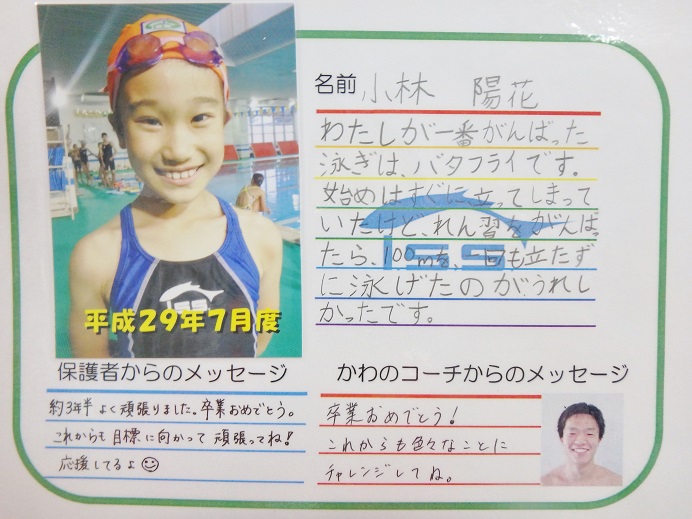 平成29年7月度
名前 小林 陽花
わたしが一番がんばった
泳ぎは、バタフライです。
始めはすぐに立ってしまって
いたけど、れん習をがんばっ
たら、100mを、一回も立たず
に泳げたのがうれし
かったです。
ISS
保護者からのメッセージ
約3年半よく頑張りました。卒業おめでとう。
これからも目標に向かって頑張ってね!
応援してるよ☺
かわのコーチからのメッセージ
卒業おめでとう!
これからも色々なことに
チャレンジしてね。